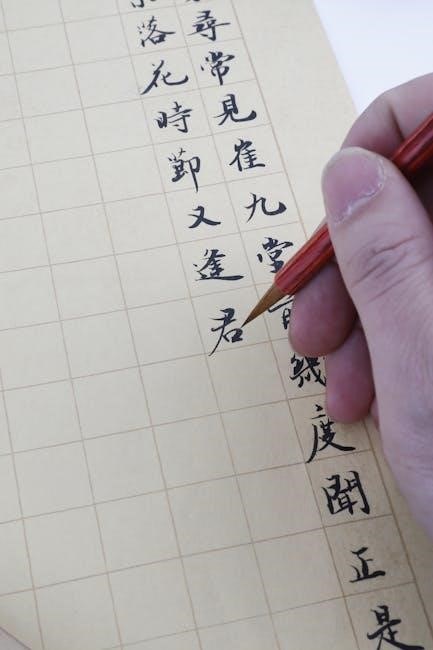 尋常見崔九堂前幾度聞正是
落花時節又逢君